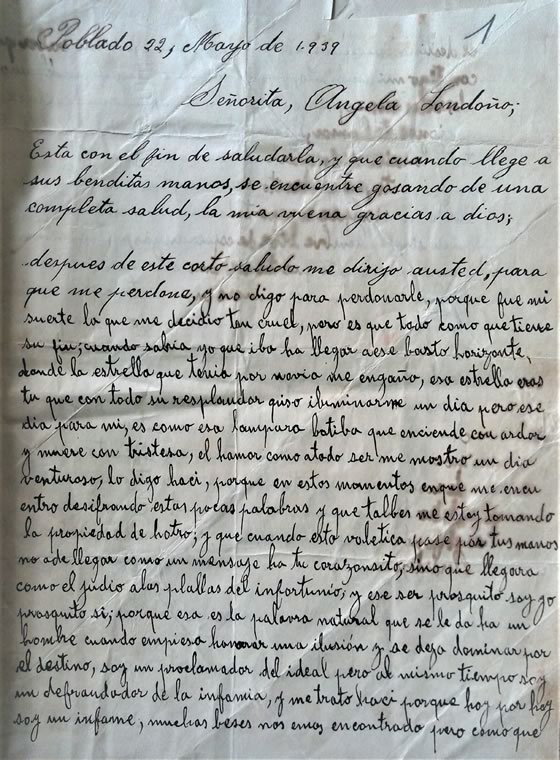 1
Poblado 22, Mayo de 1.939
Señorita, Angela Londoño;
Esta con el fin de saludarla, y que cuando llege a
sus benditas manos, se encuentre gosando de una
completa salud, la mia vuena gracias a dios;
despues de este corto saludo me dirijo austed, para
que me perdone, y no digo para perdonarle, porque fue mi
suerte la que me decidio tan cruel, pero es que todo como que tiene
su fin; cuando sabia yo que iba ha llegar a ese basto horizonte,
donde la estrella que tenia por novia me engaño, esa estrella eras
tu que con todo su resplandor quiso iluminarme un dia pero ese
dia para mi, es como esa lampara botiba que enciende con ardor
y muere con tristesa, el hamor como atodo ser me mostro un dia
venturoso, lo digo haci, porque en estos momentos enque me encu
entro desifrando estas pocas palabras y que talbes me estoy tomando
la propiedad de hotro; y que cuando esta voletica pase por tus manos
no a de llegar como un mensaje ha tu corazonsito, sino que llegara
como el judio a las plallas del infortunio; y ese ser prosquito soy yo
prosquito si; porque esa es la palavra natural que se le da ha un
hombre cuando empiesa ha una ilusión y se deja dominar por
el destino, soy un proclamador del ideal pero al mismo tiempo soy
un defraudador de la infamia, y me trato haci porque hoy por hoy
soy un infame, muchas beses nos emos encontrado pero como que